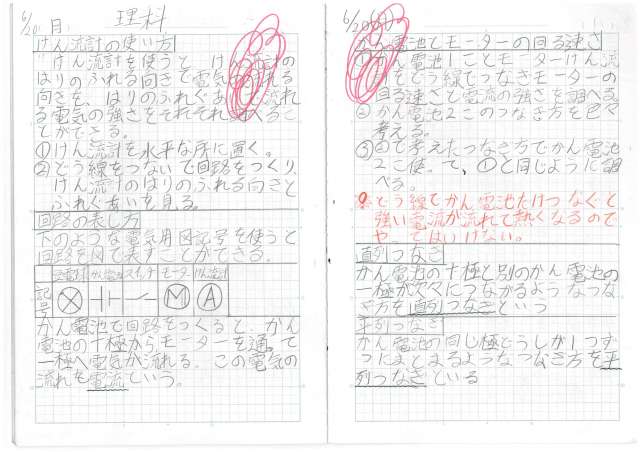 6/20 月 理科
けん流計の使い方
けん流計を使うと、けん流計の
はりのふれる向きで電気の流れる
向きを、はりのふれぐあいで流れ
る電気の強さをそれぞれ調べるこ
とができる。
①けん流計を水平な所に置く。
②どう線をつないで回路をつくり、
けん流計のはりのふれる向きと
ふれぐあいを見る。
回路の表し方
下のような電気用図記号を使うと
回路を図で表すことができる。
豆電灯 かん電池 スイッチ モーター けん流計
記号 M A
かん電池で回路をつくると、かん
電池の+極からモーターを通って
-極へ電気が流れる。この電気の
流れを電流という。
6/20(月)
かん電池とモーターの回る速さ
①かん電池1ことモーターけん流
計をどう線でつなぎモーターの
回る速さと電流の強さを調べる。
②かん電池2このつなぎ方を色々
考える。
③②で考えたつなぎ方でかん電池
2こ使って、①と同じように調
べる。
どう線でかん電池だけつなぐと
強い電流が流れて熱くなるので
やってはいけない。
直列つなぎ
かん電池の+極と別のかん電池の
-極が次々につながるようなつな
ぎ方を直列つなぎという
平列つなぎ
かん電池の同じ極どうしが1つず
つにまとまるようなつなぎ方を平
列つなぎという